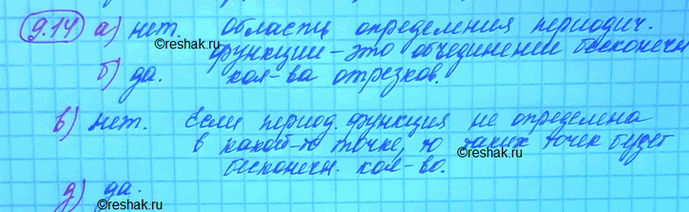 9.14 а) нет. область определения периодич.
функции – это объединение бесконечн
б) да. кол-ва отрезков.
в) нет. Если период. функция не определена
в какой-то точке, то таких точек будет
бесконечн. кол-во.
д) да.
©reshak.ru
©reshak.ru
©reshak.ru